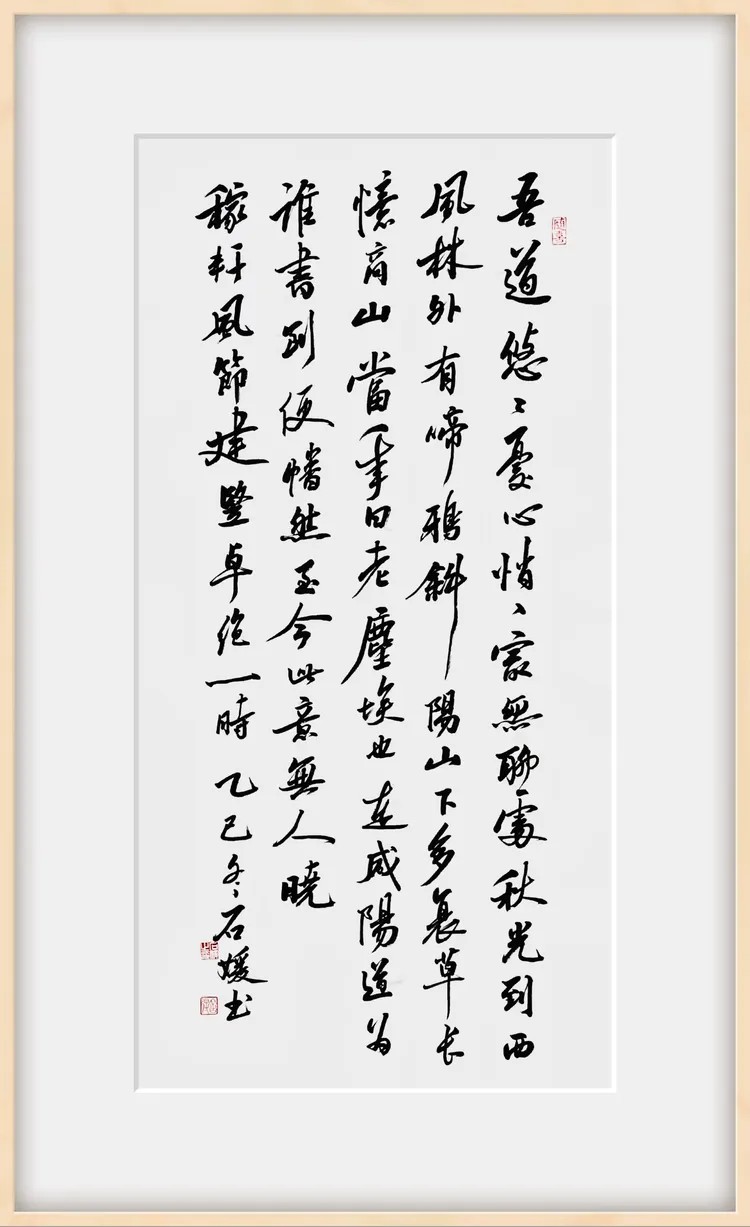 吾道悠〻憂心悄〻冣無聊處秋光到西
風林外有啼鴉斜陽山下多衰草長
憶商山當年四老塵埃也走咸陽道為
誰書到便幡然至今此意無人曉
稼軒風節建豎卓絕一時 乙巳冬石媛書